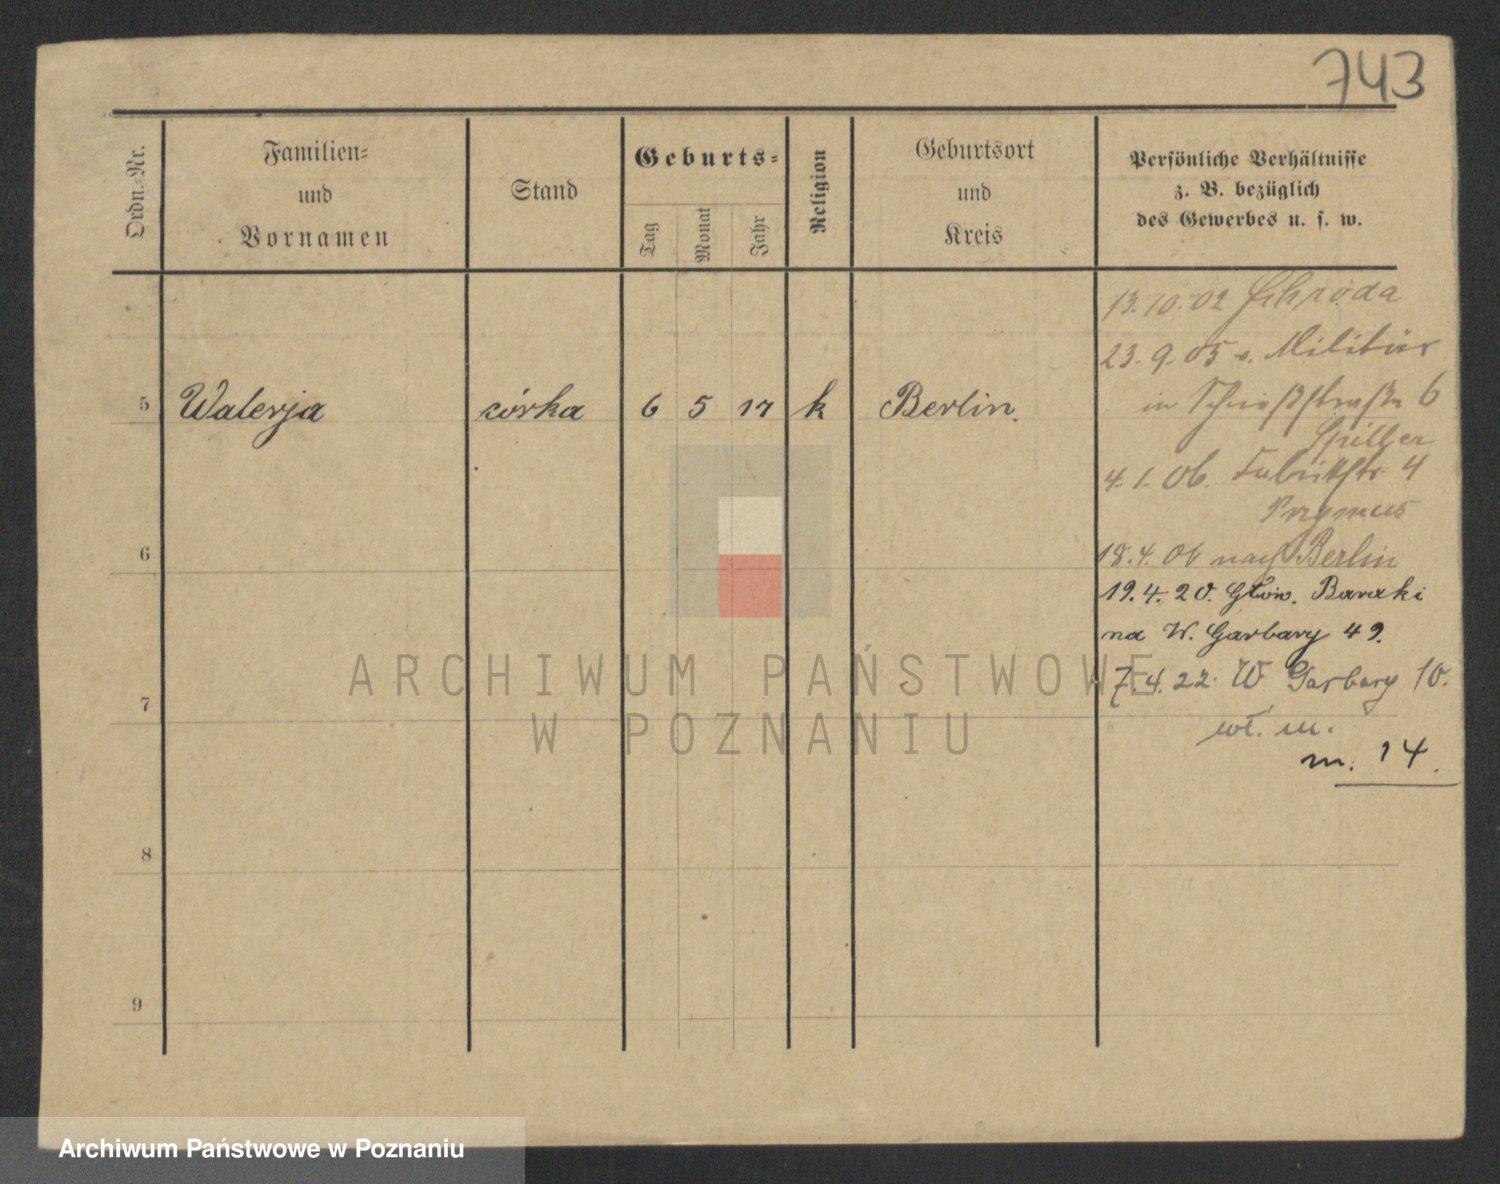 743
Ordn.-Nr.
Familien-
und
Vornamen
Stand
Geburts-
Tag
Monat
Jahr
Religion
Geburtsort
und
Kreis
Persönliche Verhältnisse
z. B. bezüglich
des Gewerbes u. s. w.
13.10.02 Schroda
23.9.05 v. Militär
in Schießstraße 6
Spiller
5 Walerja córka 6 5 17 k Berlin.
4.1.06. Fabrikstr. 4
Prymus
6
18.4.06 nach Berlin
19.4.20. Głów. Baraki
na W. Garbary 49.
7
7.4.22. W Garbary 10.
wł. m.
m. 14.
8
9
ARCHIWUM PAŃSTWOWE
W POZNANIU
Archiwum Państwowe w Poznaniu